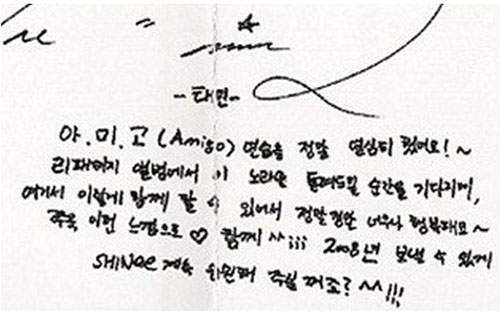 - 태민 -
아.미.고 (Amigo) 연습을 정말 열심히 했어요! ~
리패키지 앨범에서 이 노래를 들려드릴 순간을 기다리며,
여기서 이렇게 함께 할 수 있어서 정말정말 너무나 행복해요~
쭈욱 이런 느낌으로 ♡ 함께 ^^;;; 2008년 보낼 수 있게
SHINee 계속 응원해 주실 꺼죠? ^^!!!